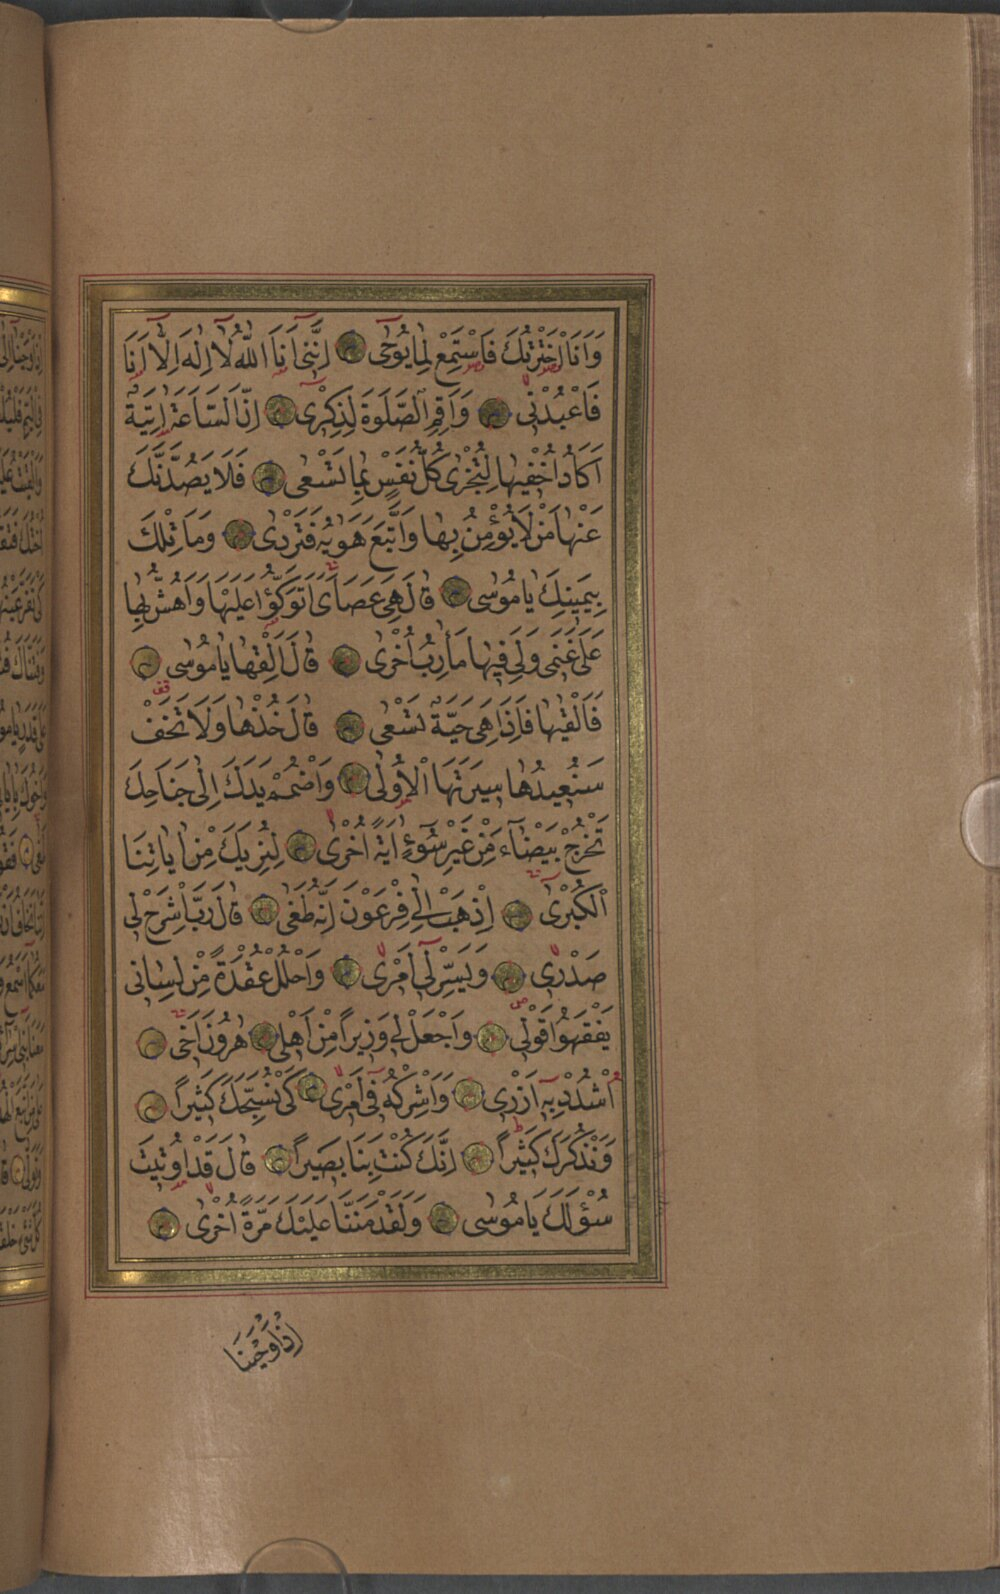 وَاَنَا اخْتَرْتُكَ فَاسْتَمِعْ لِمَا يُوحٰى اِنَّنٖى اَنَا اللّٰهُ لَا اِلٰهَ اِلَّا اَنَا
فَاعْبُدْنٖى وَاَقِمِ الصَّلٰوةَ لِذِكْرٖى اِنَّ السَّاعَةَ اٰتِيَةٌ
اَكَادُ اُخْفٖيهَا لِتُجْزٰى كُلُّ نَفْسٍ بِمَا تَسْعٰى فَلَا يَصُدَّنَّكَ
عَنْهَا مَنْ لَا يُؤْمِنُ بِهَا وَاتَّبَعَ هَوٰيهُ فَتَرْدٰى وَمَا تِلْكَ
بِيَمٖينِكَ يَا مُوسٰى قَالَ هِىَ عَصَاىَ اَتَوَكَّؤُا عَلَيْهَا وَاَهُشُّ بِهَا
عَلٰى غَنَمٖى وَلِىَ فٖيهَا مَاٰرِبُ اُخْرٰى قَالَ اَلْقِهَا يَا مُوسٰى
فَاَلْقٰيهَا فَاِذَا هِىَ حَيَّةٌ تَسْعٰى قَالَ خُذْهَا وَلَا تَخَفْ
سَنُعٖيدُهَا سٖيرَتَهَا الْاُولٰى وَاضْمُمْ يَدَكَ اِلٰى جَنَاحِكَ
تَخْرُجْ بَيْضَآءَ مِنْ غَيْرِ سُوٓءٍ اٰيَةً اُخْرٰى لِنُرِيَكَ مِنْ اٰيَاتِنَا
الْكُبْرٰى اِذْهَبْ اِلٰى فِرْعَوْنَ اِنَّهُ طَغٰى قَالَ رَبِّ اشْرَحْ لٖى
صَدْرٖى وَيَسِّرْ لٖى اَمْرٖى وَاحْلُلْ عُقْدَةً مِنْ لِسَانٖى
يَفْقَهُوا قَوْلٖى وَاجْعَلْ لٖى وَزٖيراً مِنْ اَهْلٖى هٰرُونَ اَخٖى
اُشْدُدْ بِهٖ اَزْرٖى وَاَشْرِكْهُ فٖى اَمْرٖى كَىْ نُسَبِّحَكَ كَثٖيراً
وَنَذْكُرَكَ كَثٖيراً اِنَّكَ كُنْتَ بِنَا بَصٖيراً قَالَ قَدْ اُوتٖيتَ
سُؤْلَكَ يَا مُوسٰى وَلَقَدْ مَنَنَّا عَلَيْكَ مَرَّةً اُخْرٰى
اِذْ اَوْحَيْنَا